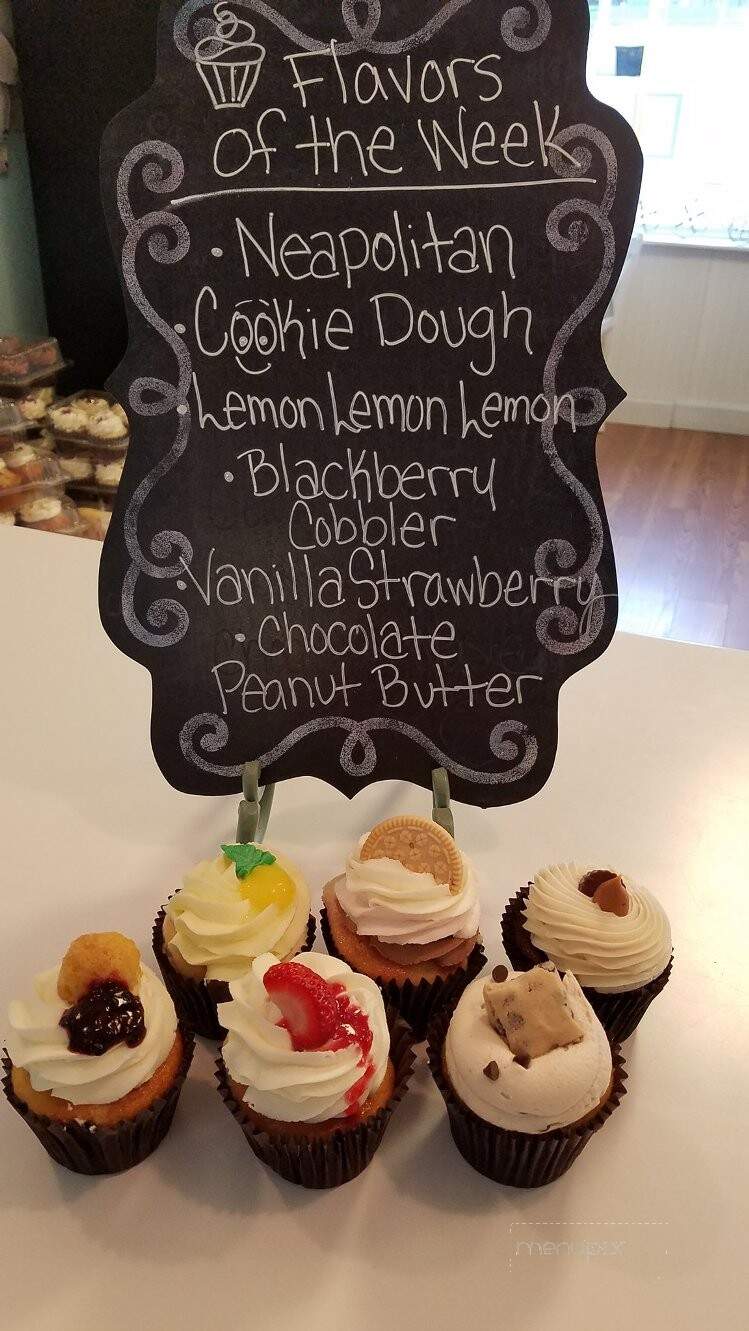 Flavors
of the Week
• Neapolitan
• Cookie Dough
• Lemon Lemon Lemon
• Blackberry
Cobbler
• Vanilla Strawberry
• Chocolate
Peanut Butter
menupix